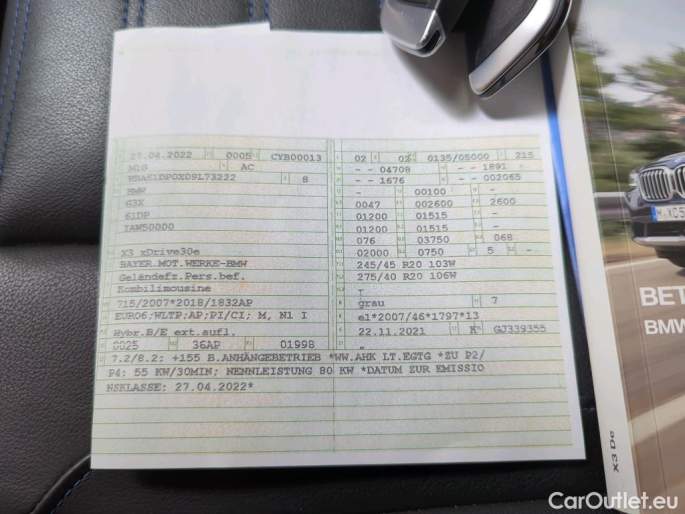 27.04.2022 0005 CYB00013
M1G AC
8
BMW
G3X
61DP
YAW50000
X3 xDrive30e
BAYER.MOT.WERKE-BMW
Geländefz.Pers.bef.
Kombilimousine
715/2007*2018/1832AP
EURO6;WLTP;AP;PI/CI; M, N1 I
Hybr.B/E ext.aufl.
0025 36AP 01998
02 02 0135/05000 215
- - 04708 - - 1891 -
- - 1676 - - 002065
- 00100 -
0047 002600 2600
01200 01515 -
01200 01515 -
076 03750 068
02000 0750 5 -
245/45 R20 103W
275/40 R20 106W
-
grau 7
e1*2007/46*1797*13
22.11.2021 K GJ339355
-
7.2/8.2: +155 B.ANHÄNGEBETRIEB *WW.AHK LT.EGTG *ZU P2/
P4: 55 KW/30MIN; NENNLEISTUNG 80 KW *DATUM ZUR EMISSIO
NSKLASSE: 27.04.2022*
BET
BMW
X3 De
CarOutlet.eu